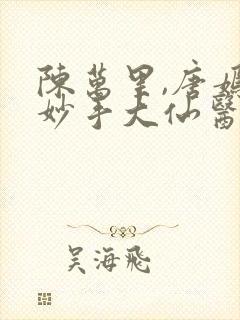 陳萬里,唐嫣
妙手大仙醫
吴海飛